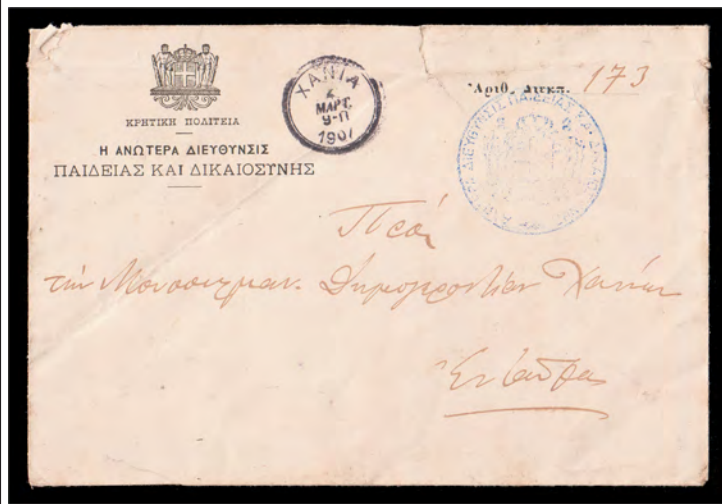 ΚΡΗΤΙΚΗ ΠΟΛΙΤΕΙΑ
Η ΑΝΩΤΕΡΑ ΔΙΕΥΘΥΝΣΙΣ
ΠΑΙΔΕΙΑΣ ΚΑΙ ΔΙΚΑΙΟΣΥΝΗΣ
ΧΑΝΙΑ
ΜΑΡΤ.
1907
Ἀριθ. Διεκπ. 173
ΑΝΩΤΕΡΑ ΔΙΕΥΘΥΝΣΙΣ ΠΑΙΔΕΙΑΣ ΚΑΙ ΔΙΚΑΙΟΣΥΝΗΣ
Πρός
τὴν Μουσουλμαν. Δημογεροντίαν Χανίων
Ἐνταῦθα